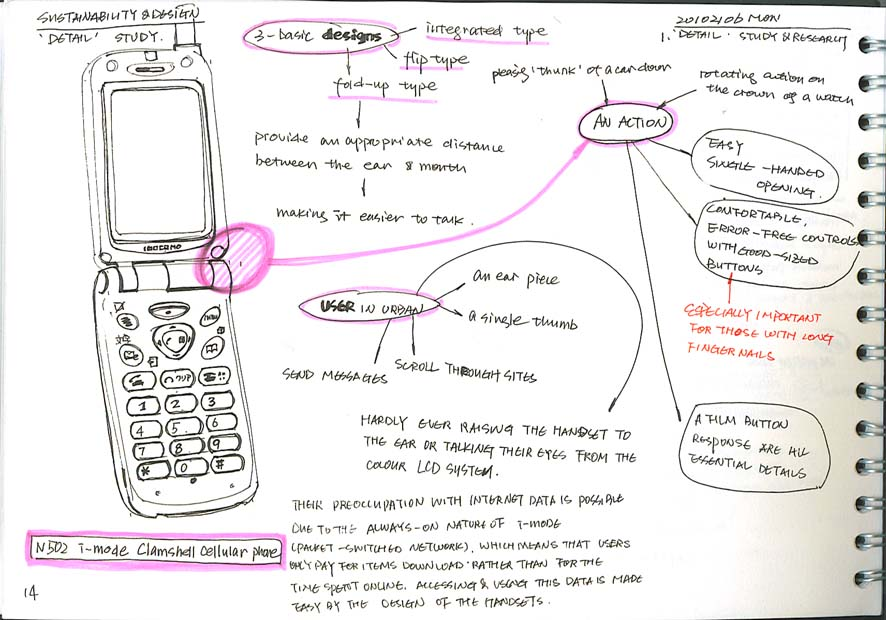 SUSTAINABILITY & DESIGN
'DETAIL' STUDY.
20102106 MON
1. 'DETAIL' STUDY & RESEARCH
3-basic designs
integrated type
flip type
fold-up type
provide an appropriate distance
between the ear & mouth
making it easier to talk.
'thunk' of a car
rotating action on
the crown of a watch
AN ACTION
EASY
SINGLE-HANDED
OPENING.
CONFORTABLE,
ERROR-FREE CONTROLS
WITH GOOD-SIZED
BUTTONS
ESPECIALLY IMPORTANT
FOR THOSE WITH LONG
FINGERNAILS
A FILM BUTTON
RESPONSE ARE ALL
ESSENTIAL DETAILS
USER IN URBAN
an ear piece
a single thumb
SEND MESSAGES
SCROLL THROUGH SITES
HARDLY EVER RAISING THE HANDSET TO
THE EAR OR TALKING THEIR EYES FROM THE
COLOUR LCD SYSTEM.
THEIR PREOCCUPATION WITH INTERNET DATA IS POSSIBLE
DUE TO THE ALWAYS-ON NATURE OF i-MODE
(PACKET-SWITCHED NETWORK), WHICH MEANS THAT USERS
ONLY PAY FOR ITEMS DOWNLOAD RATHER THAN FOR THE
TIME SPENT ONLINE. ACCESSING & USING THIS DATA IS MADE
EASY BY THE DESIGN OF THE HANDSETS.
MENU
1 2 3
4 5 6
7 8 9
* 0 #
N502 i-mode Clamshell Cellular phone
14